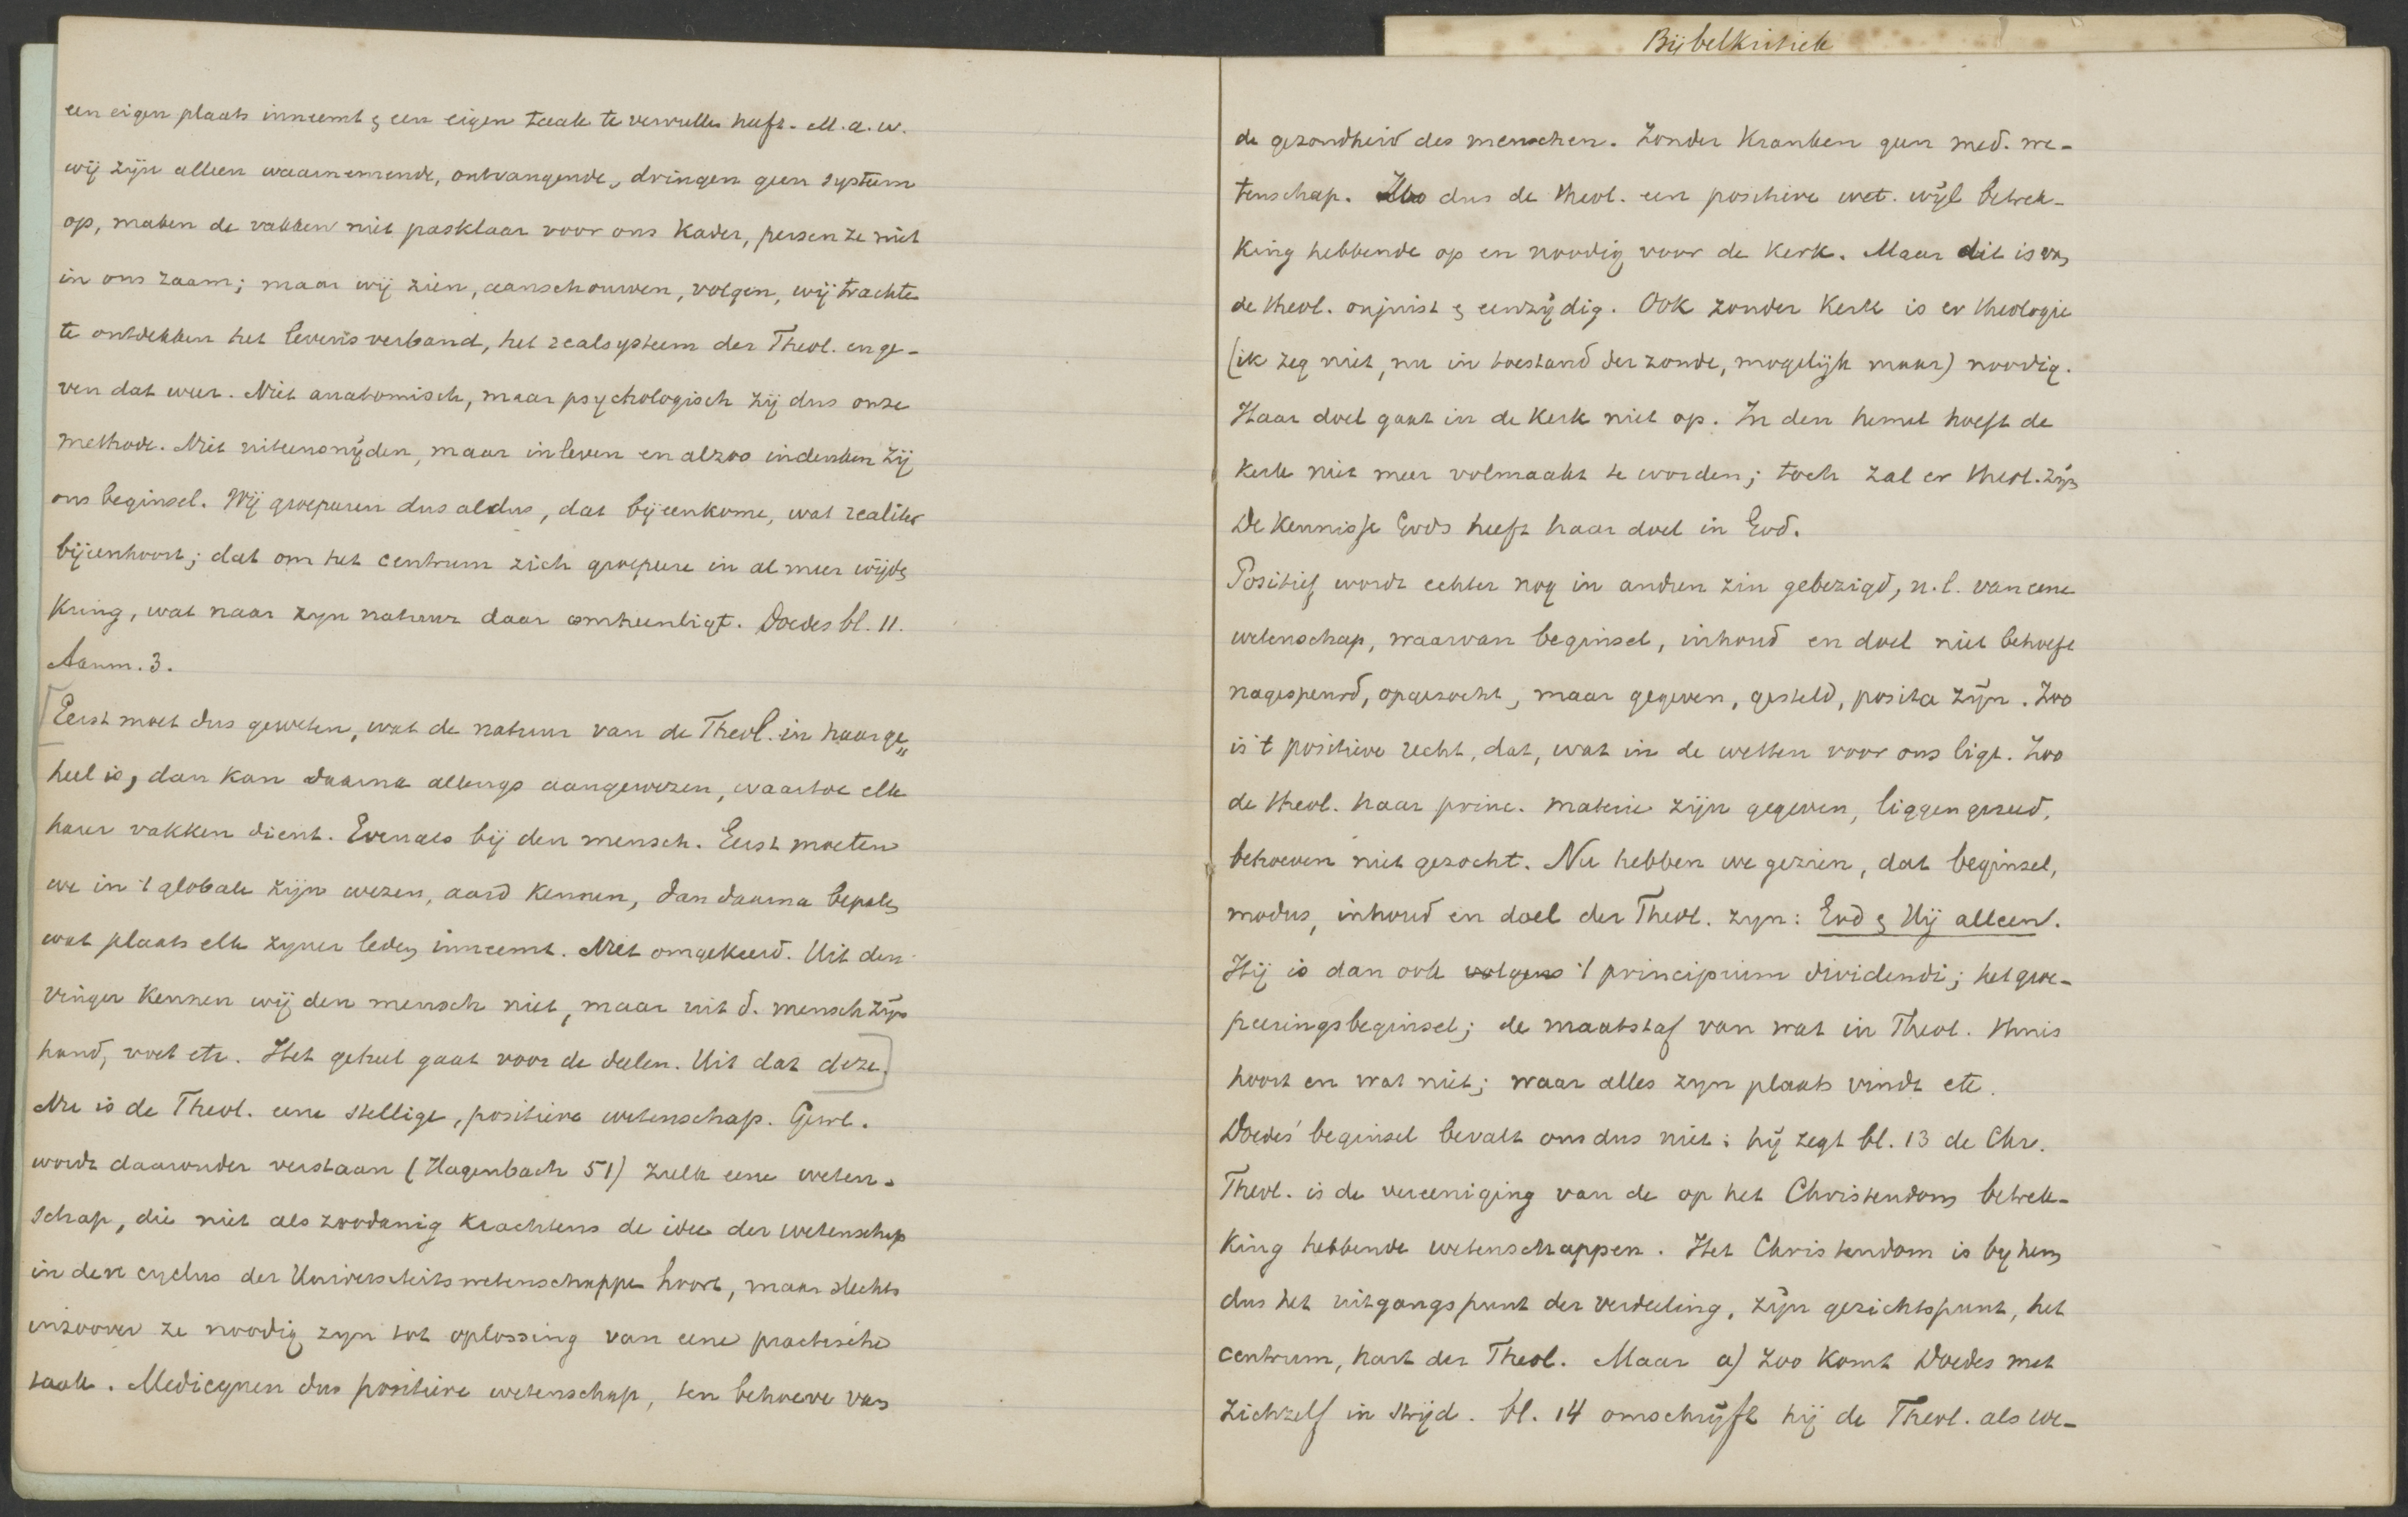 een eigen plaats inneemt & een eigen taak te vervullen heeft. M.a.w.
wij zijn alleen waarnemende, ontvangende, dringen geen systeem
op, maken de vakken niet pasklaar voor ons kader, persen ze niet
in ons zaam; maar wij zien, aanschouwen, volgen, wij trachten
te ontdekken het levensverband, het realsysteem der Theol. en ge-
ven dat weer. Niet anatomisch, maar psychologisch zij dus onze
methode. Niet uiteensnijden, maar inleven en alzoo indenken zij
ons beginsel. Wij groepeeren dus aldus, dat bijeenkome, wat realiter
bijeenhoort; dat om het centrum zich groepeere in al meer wijden
kring, wat naar zyn natuur daar omheenligt. Doedes bl. 11.
Aanm. 3.
[Eerst moet dus geweten, wat de natuur van de Theol. in haar ge„
heel is, dan kan daarna allengs aangewezen, waartoe elk
harer vakken dient. Evenals bij den mensch. Eerst moeten
we in 't globale zijn wezen, aard kennen, dan daarna bepalen
wat plaats elk zyner leden inneemt. Niet omgekeerd. Uit den
vinger kennen wij den mensch niet, maar uit d. mensch zijn
hand, voet etc. Het geheel gaat voor de deelen. Uit dat deze.]
Nu is de Theol. eene stellige, positieve wetenschap. Gewl.
wordt daaronder verstaan (Hagenbach 51) zulk eene weten-
schap, die niet als zoodanig krachtens de idee der wetenschap
in den cyclus der Universiteitswetenschappen hoort, maar slechts
inzoover ze noodig zyn tot oplossing van eene practische
taak. Medicynen dus positieve wetenschap, ten behoeve van
Bijbelkritiek
de gezondheid des menschen. Zonder kranken geen med. we-
tenschap. Zoo dus de theol. een positieve wet. wijl betrek-
king hebbende op en noodig voor de kerk. Maar dit is van
de theol. onjuist & eenzijdig. Ook zonder kerk is er theologie
(ik zeg niet, nu in toestand der zonde, mogelijk maar) noodig.
Haar doel gaat in de kerk niet op. In den hemel hoeft de
kerk niet meer volmaakt te worden; toch zal er theol. zijn
De kennisse Gods heeft haar doel in God.
Positief wordt echter nog in andren zin gebezigd, n.l. van eene
wetenschap, waarvan beginsel, inhoud en doel niet behoeft
nagespeurd, opgezocht, maar gegeven, gesteld, posita zijn. Zoo
is 't positieve recht, dat, wat in de wetten voor ons ligt. Zoo
de theol. haar princ. materie zijn gegeven, liggen gereed,
behoeven niet gezocht. Nu hebben we gezien, dat beginsel,
modus, inhoud en doel der Theol. zyn: God & Hij alleen.
Hij is dan ook volgens 't principium dividendi; het groe-
peeringsbeginsel; de maatstaf van wat in Theol. thuis
hoort en wat niet; waar alles zyn plaats vindt etc.
Doedes' beginsel bevalt ons dus niet: hij zegt bl. 13 de Chr.
Theol. is de vereeniging van de op het Christendom betrek-
king hebbende wetenschappen. Het Christendom is by hem
dus het uitgangspunt der verdeeling, zijn gezichtspunt, het
centrum, hart der Theol. Maar a) zoo komt Doedes met
zichzelf in strijd. bl. 14 omschrijft hij de Theol. als we-